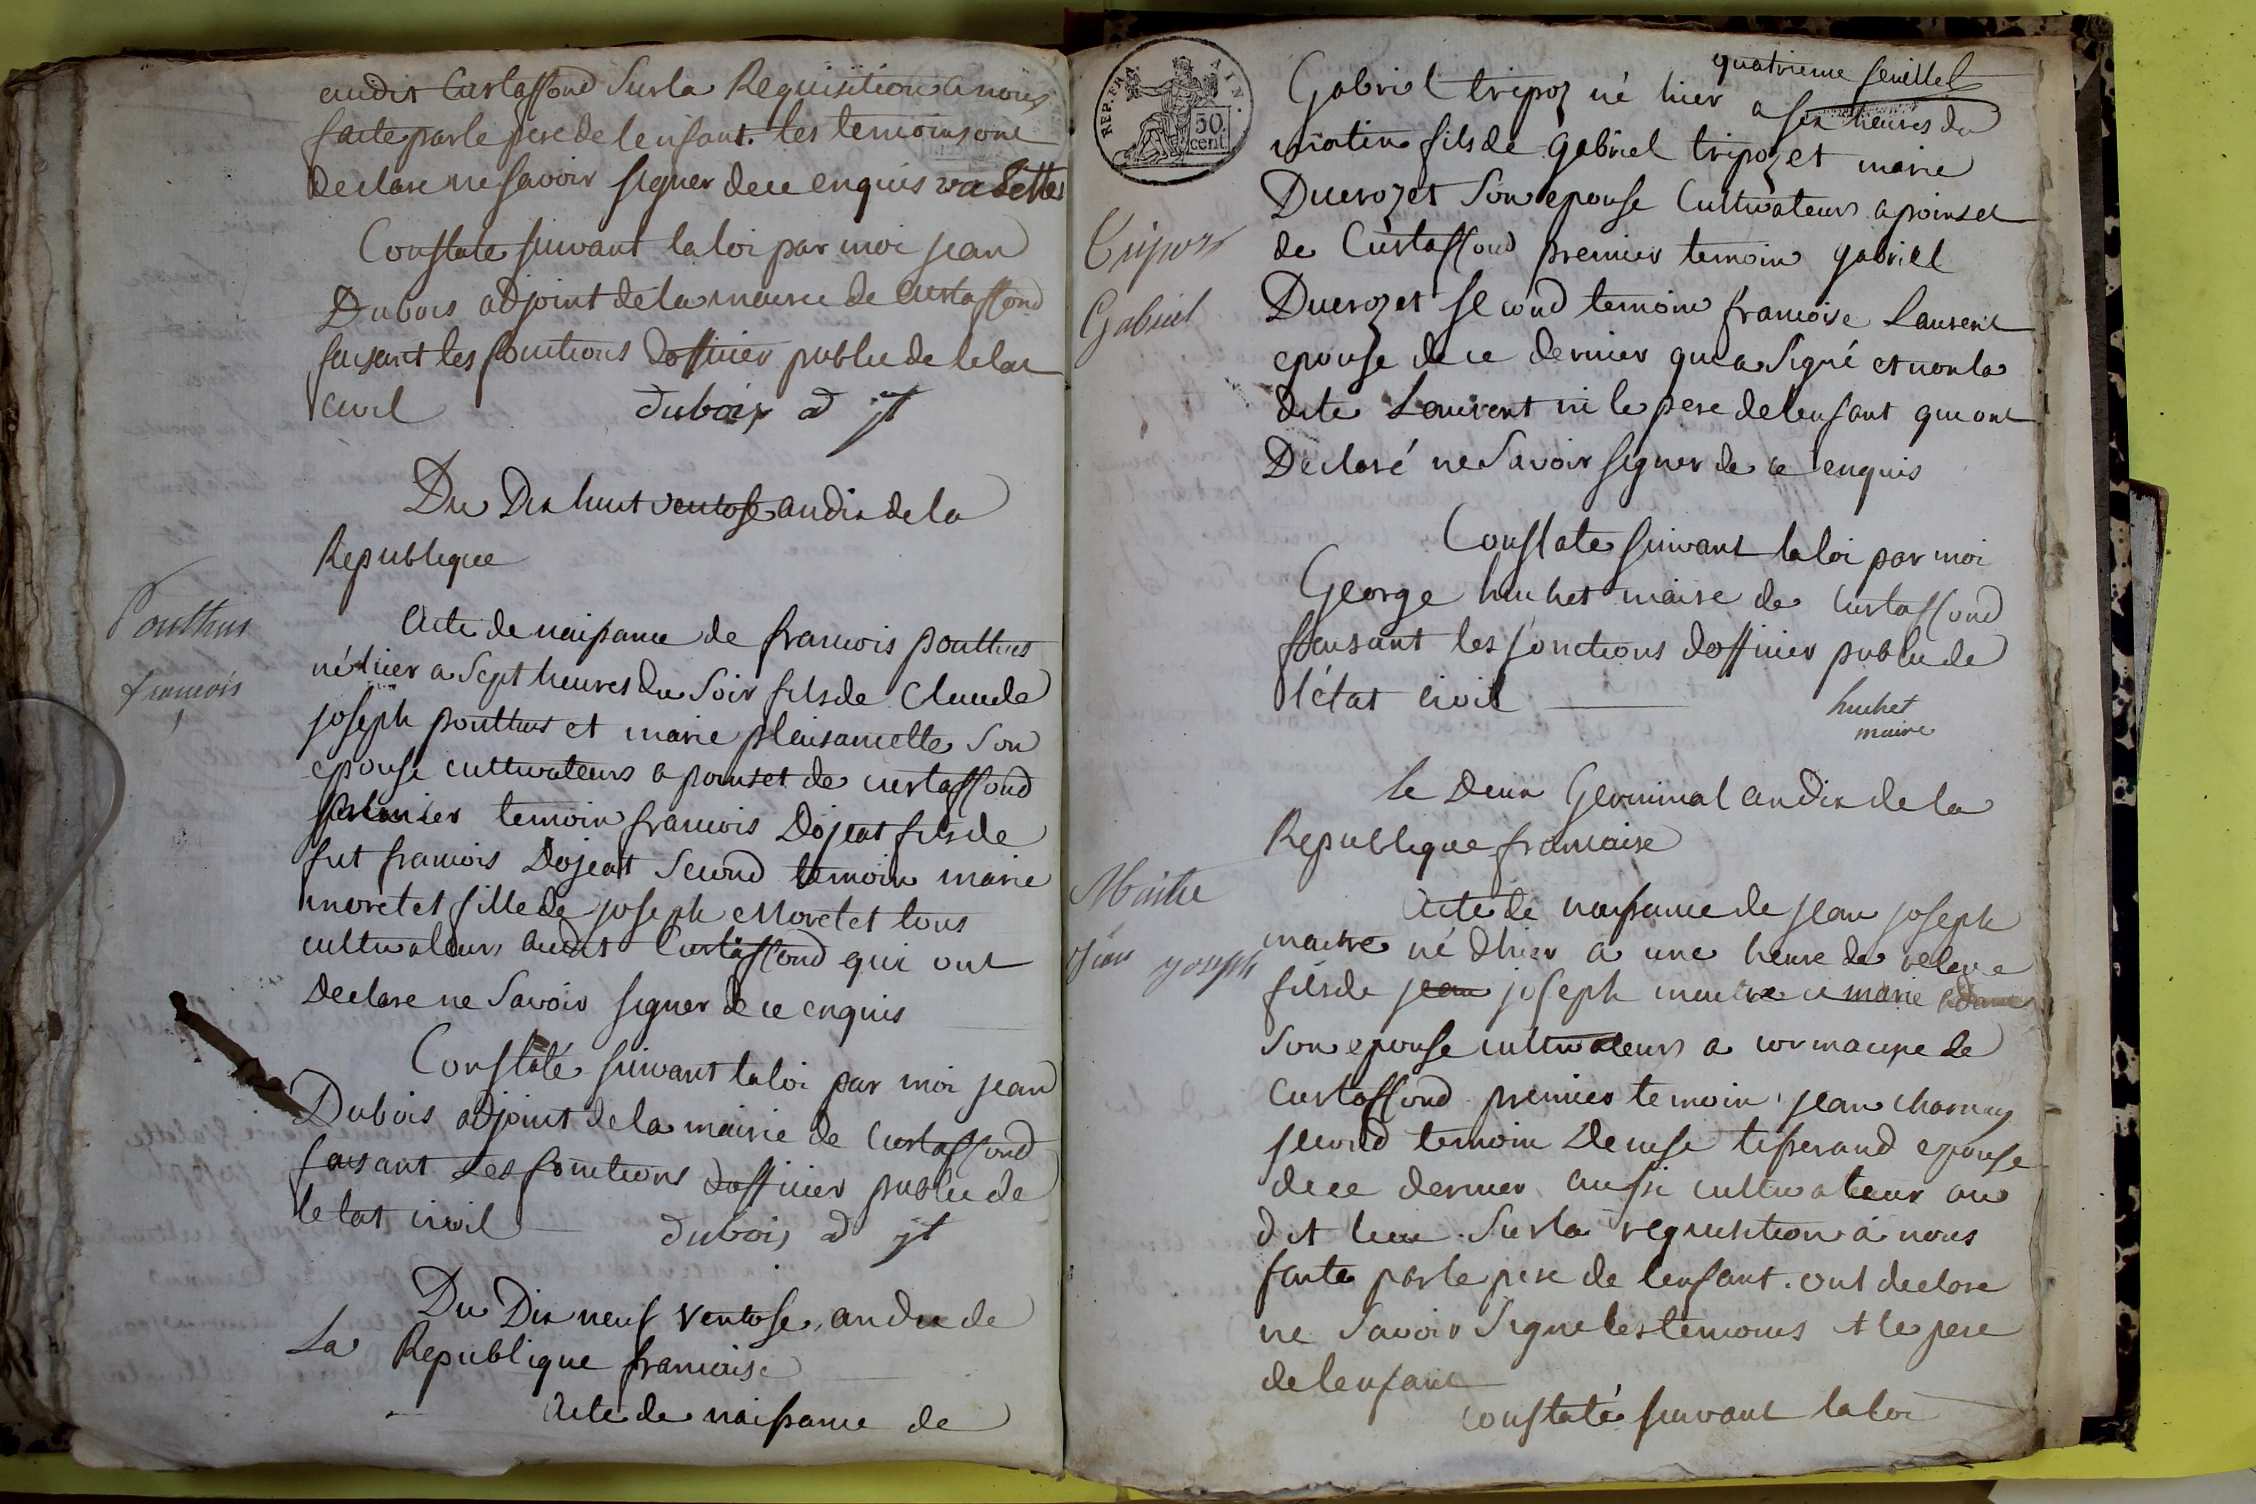 audit Curtaffond Sur la Requisition a nous
faite par le pere de lenfant. les temoins ont
Declare ne savoir signer de ce enquis
Constate suivant la loi par moi jean
Dubois adjoint de la mairie de Curtaffond
faisant les fonctions dofficier public de letat
civil dubois adjt
Du Dix huit ventose an dix de la
Republique
Pouthus
françois
Acte de naissance de francois pouthus
né hier a sept heures du soir fils de Claude
joseph pouthus et marie plaisancette son
epouse cultivateurs a poinset de curtaffond
premier temoin francois Dojeat fils de
fut francois Dojeat second temoin marie
moretet fille de joseph Moretet tous
cultivateurs audit Curtaffond qui ont
Declare ne Savoir signer de ce enquis
Constaté suivant la loi par moi jean
Dubois adjoint de la mairie de Curtaffond
faisant Les fonctions dofficier public de
letat civil dubois adjt
Du Dix neuf Ventose an dix de
La Republique francaise
Acte de naissance de
quatrieme feuillet
REP. FRA
50
cent.
Gabriel tripoz né hier a six heures du
matin fils de gabriel tripoz et marie
Ducrozet Son epouse Cultivateurs a poinset
Tripoz
Gabriel
de Curtaffond premier temoin gabriel
Ducrozet second temoin francoise Laurent
epouse de ce dernier qui a Signé et non la
dite Laurent ni le pere de lenfant qui ont
Declaré ne Savoir signer de ce enquis
Constate suivant la loi par moi
George huchet maire de Curtaffond
faisant les fonctions dofficier public de
l'état civil
huchet
maire
le Deux Germinal an dix de la
Republique francaise
Maitre
jean joseph
Acte de naissance de jean joseph
maitre né dhier a une heure de releve
fils de jean joseph maitre e marie
Son epouse cultivateurs a cormacine de
Curtaffond premier temoin jean charnay
second temoin Denise tisserand epouse
de ce dernier aussi cultivateur au
dit lieu Sur la requisition a nous
faite par le pere de lenfant. ont declare
ne Savoir Signe les temoins et le pere
de lenfant
constaté suivant la loi